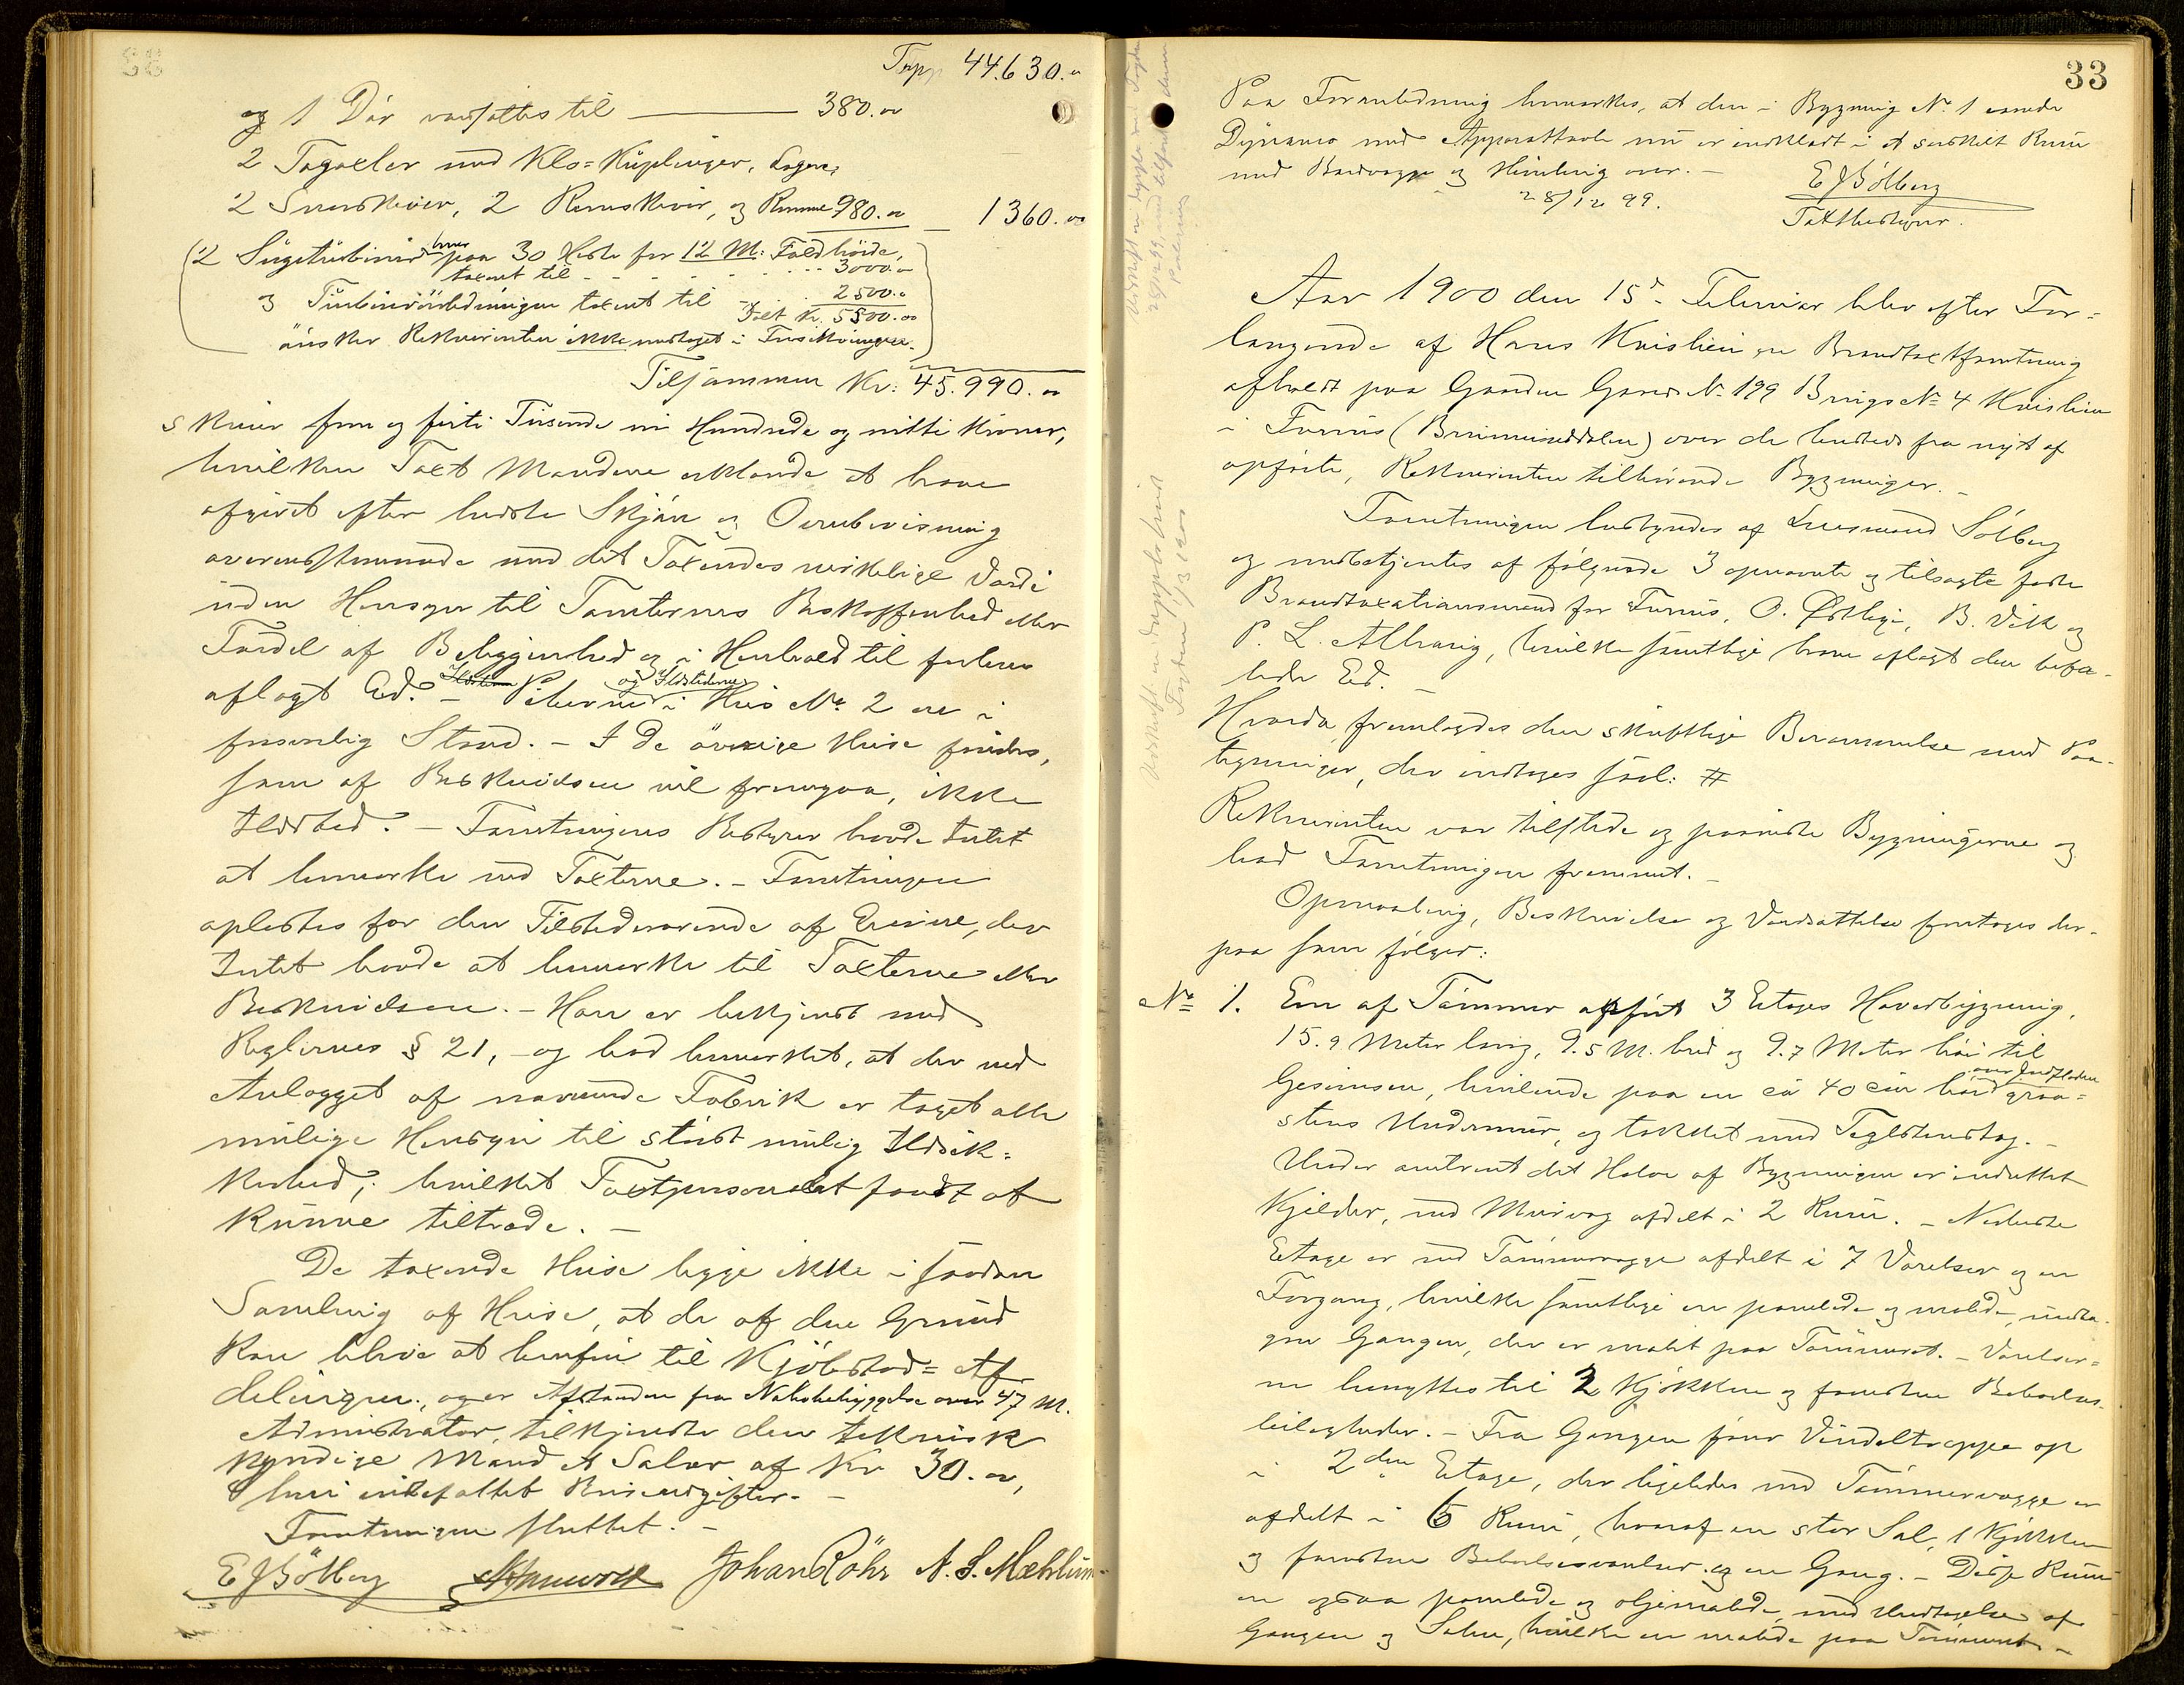 Trpp 44.630.00
og 1 Dör værsattes til 380.00
2 Tagaxler med Klo=Kuplinger, Lagere,
2 Snorskiver, 2 Remskiver, og Remme 980.00 1360.00
(2 Sugeturbiner hver paa 30 Heste for 12 M: Faldhöide,
taxeret til 3000.00
og Turbinrörledningen taxeret til 2500.00
Ialt Kr. 5500.00
önsker Rekvirenten ikke medtaget i Forsikringen.)
Tilsammen Kr: 45.990.00
skriver fem og firti Tusende ni Hundrede og nitti Kroner,
hvilken Taxt Mændene erklærede at have
afgivet efter bedste Skjön og Overbevisning
overensstemmende med det Taxeredes virkelige Værdi
uden Hensyn til Tomternes Beskaffenhed eller
Fordel af Beliggenhed og i Henhold til forhen
aflagt Ed. – Piberne og Ildstederne i Hus No. 2 ere i
forsvarlig Stand. – I de övrige Huse findes,
som af Beskrivelsen vil fremgaa, ikke
Ildsted. – Forretningens Bestyrer havde Intet
at bemerke ved Taxterne. – Forretningen
oplæstes for den Tilstedeværende af Eierne, der
Intet havde at bemerke til Taxterne eller
Beskrivelsen. – Han er bekjendt med
Reglernes § 21, – og bad bemerket, at der ved
Anlægget af nærværende Fabrik er taget alle
mulige Hensyn til störst mulig Ildsik=
kerhed, hvilket Taxtpersonalet fandt at
kunne tiltræde. –
De taxerede Huse ligge ikke i saadan
Samling af Huse, at de af den Grund
kan blive at henföre til Kjöbstad= Af
delingen, og er Afstanden fra Nabobebyggelse over 47 M.
Administrator tilkjendte den teknisk
kyndige Mand et Salær af Kr 30.00,
heri indbefattet Reiseudgifter. –
Forretningen sluttet. –
E J Sölberg Johan Röhr N. S. Mæhlum
33
Paa Foranledning bemerkes, at den i Bygning No. 1 værende
Dynamo med Apparattavle nu er indklædt i et særskilt Rum
med Bordvægge og Himling over. –
28/12 99.
E J Sölberg
Taxtbestyrer.
Aar 1900 den 15de Februar blev efter For=
langende af Hans Kvislien en Brandtaxtforretning
afholdt paa Gaarden Gaards No. 199 Brugs No. 4 Kvislien
i Furnes (Brumunddalen) over de berstedes fra nyt af
opförte, Rekvirenten tilhörende Bygninger. –
Forretningen bestyredes af Lensmand Sölberg
og medbetjentes af fölgende 3 opnævnte og tilsagte faste
Brandtaxationsmænd for Furnes, O. Östlie, B. Vik og
P. L. Alhaug, hvilke samtlige have aflagt den befa-
lede Ed. –
Hvorda fremlagdes den skriftlige Berammelse med Paa-
tegninger, der indtages saal: #
Rekvirenten var tilstede og paaviste Bygningerne og
bad Forretningen fremmet. –
Opmaaling, Beskrivelse og Værdsættelse foretoges der-
paa som fölger:
No 1. En af Tömmer opfört 3 Etages Hovedbygning,
15.9 Meter lang, 9.5 M. bred og 9.7 Meter höi til
Gesimsen, hvilende paa en ca 40 cm höi over Jordfladen graa=
stens Undermur, og tækket med Teglstenstag. –
Under omtrent det Halve af Bygningen er indrettet
Kjelder, ved Murvæg afdelt i 2 Rum. – Nederste
Etage er ved Tömmervægge afdelt i 7 Værelser og en
Forgang, hvilke samtlige er panelede og malede, undta-
gen Gangen, der er malet paa Tömmeret. – Værelser=
ne benyttes til 2 Kjökken og forövrigt Beboelses-
leiligheder. – Fra Gangen förer Vindeltrappe op
i 2den Etage, der ligeledes ved Tömmervægge er
afdelt i 6 Rum, hvoraf en stor Sal, 1 Kjökken
og forövrigt Beboelsesværelser og en Gang. – Disse Rum
er ogsaa panelede og oljemalede, med Undtagelse af
Gangen og Salen, hvilke er malede paa Tömmeret. –